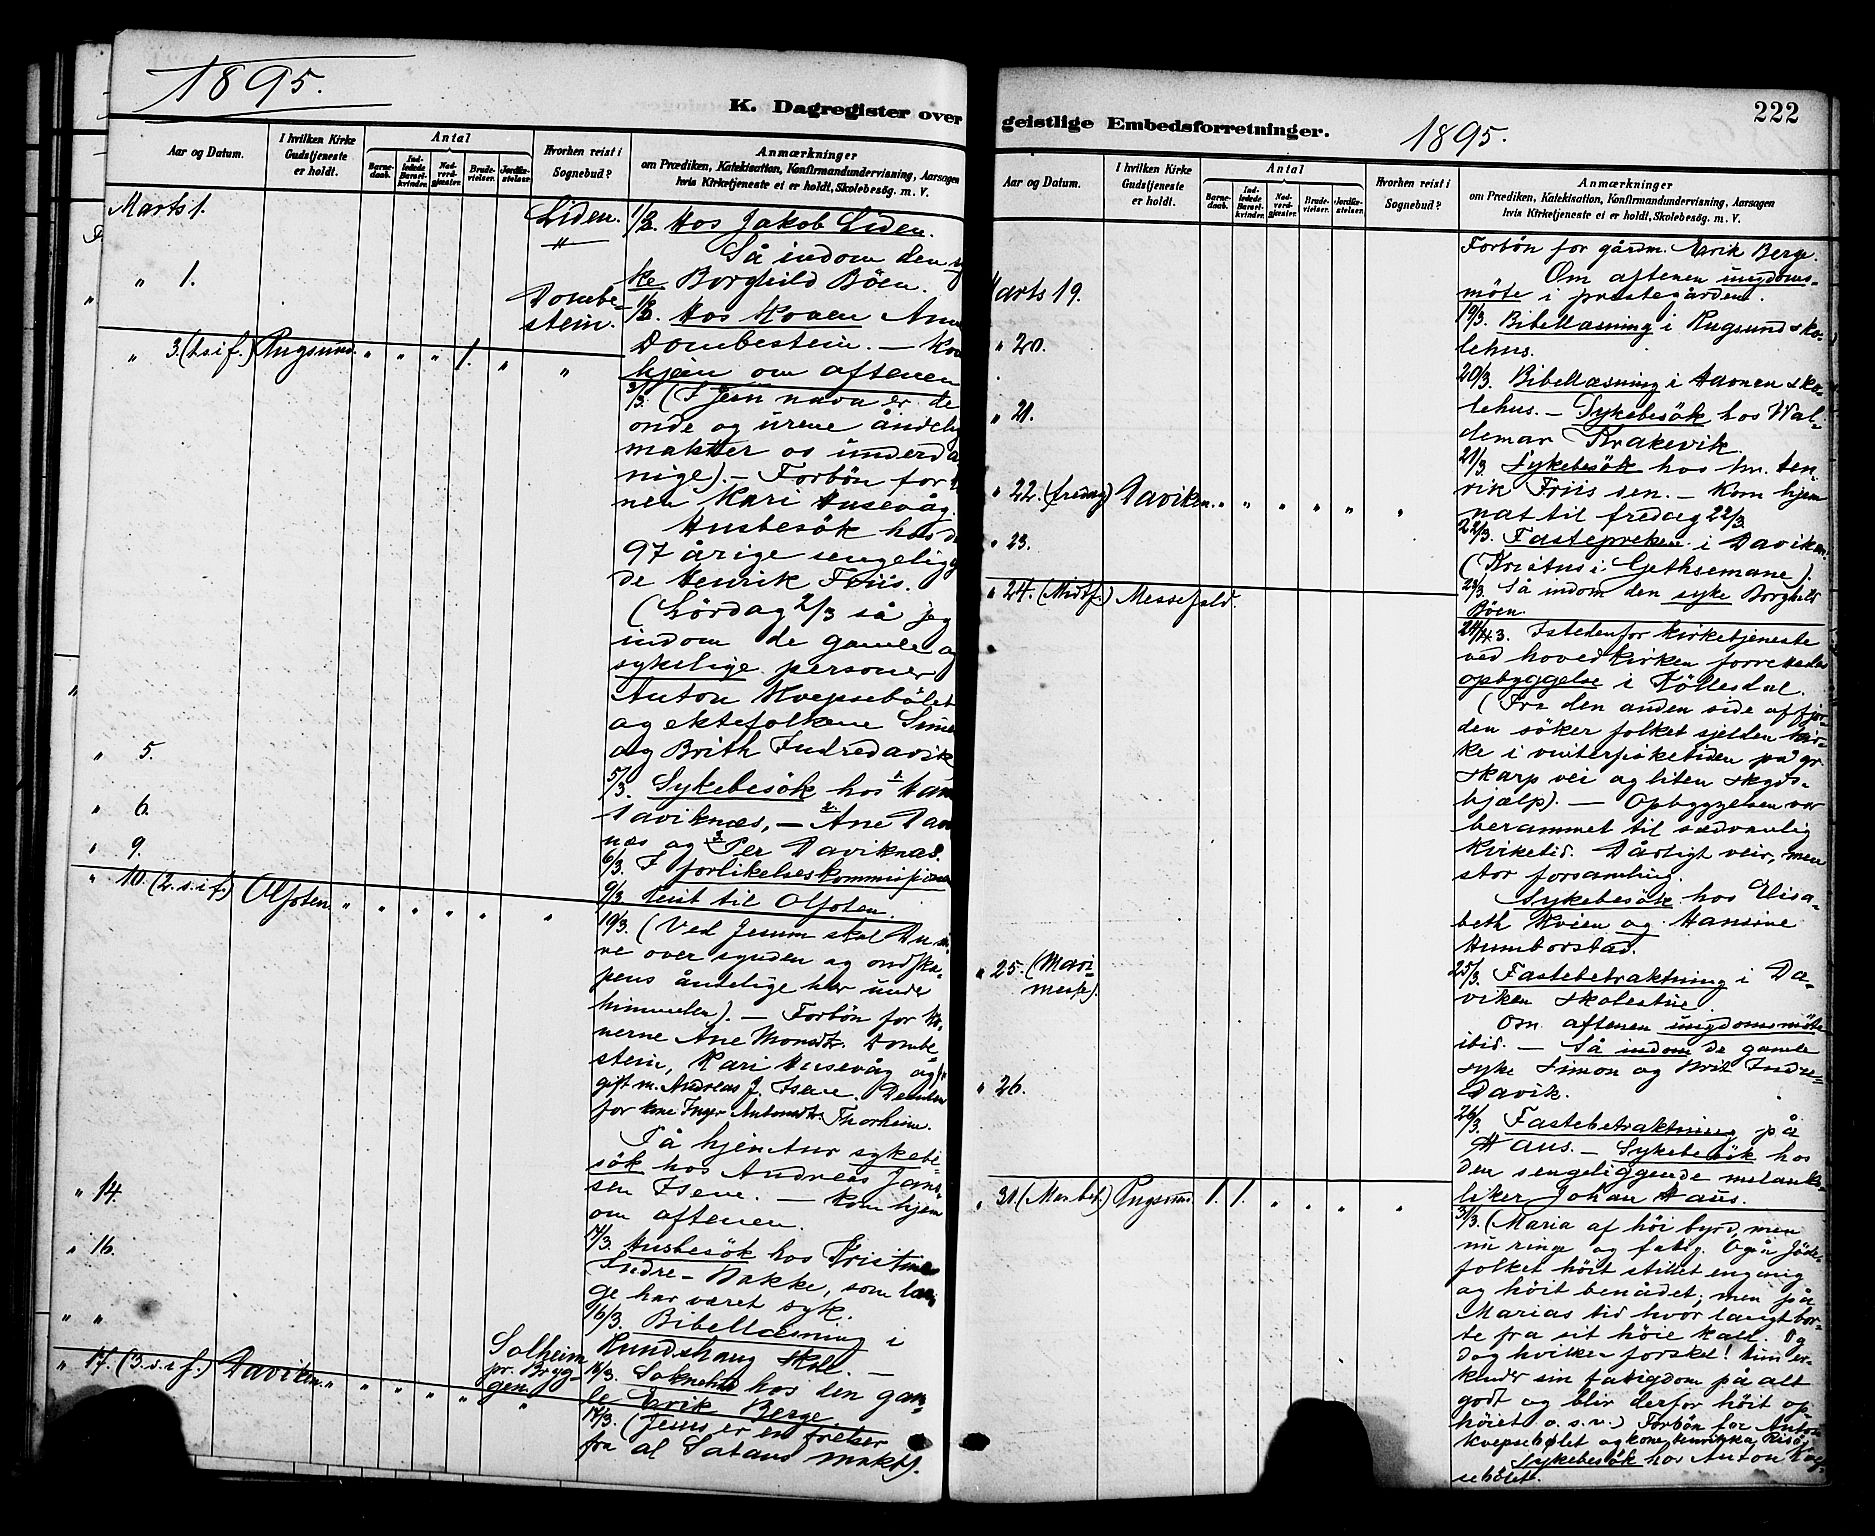 1895.
K. Dagregister over
Aar og Datum.
I hvilken Kirke Gudstjeneste er holdt.
Antal
Barnedaab.
Indledede Barselkvinder.
Nadverdgjæster.
Brudevielser.
Jordfæstelser.
Hvorhen reist i Sognebud?
Anmærkninger
om Prædiken, Katekisation, Konfirmandundervisning, Aarsagen
hvis Kirketjeneste et er holdt, Skolebesøg. m. V.
Marts 1. Liden. 1/3. Hos Jakob Liden.
" Så indom den sy
" 1. ke Borghild Böen.
Dombe- 1/3. Hos Konen Ane
stein. Dombestein. — Kom
" 3. (1.s.i f.) Rugsund. " " " 1. " " hjem om aftenen
3/3. (I Jesu navn er de
onde og urene åndelig
makter os underda
nige). — Forbön for
nen Kari Husevåg.
Husbesök hos d
97 årige sengeligg
de Henrik Friis.
(Lördag 2/3 så jeg
indom de gamle og
sykelige personer
Anton Kvepsebölet
og ektefolkene Simo
og Brith Indredavik
" 5. 5/3. Sykebesök hos 1. Han
Daviknæs, — 2. Ane Dav
" 6. næs og 3. Per Daviknæs.
6/3. I forlikelseskommissionen
" 9. 9/3 Reist til Olfoten.
" 10. (2.s.i.f.) Olfoten. " " " " " " 10/3. (Ved Jesum skal Du sei
re over synden og ondska-
pens åndelige hær under
himmelen). — Forbön for ko-
nerne Ane Monsdtr. Dombe-
stein, Kari Husevåg og
gift m. Andreas J. Isene. Desuten
for kone Inger Antonsdtr. Thorheim.
På hjemtur sykebe-
sök hos Andreas Jans-
sen Isene. — Kom hjem
om aftenen.
" 14. 14/3. Husbesök hos Kristine
Indre-Bakke, som læn-
ge har været syk.
" 16. 16/3. Bibellæsning i
Rundshaug skole. —
" " Solheim pr. Bryggen. 16/3. Soknebud hos den gam-
le Erik Berge
" 17. (3.s.i f.) Daviken. " " " " " " 17/3. (Jesus er en frelser
fra al Satans makt).
geistlige Embedsforretninger.
1895.
222
Aar og Datum.
I hvilken Kirke Gudstjeneste er holdt.
Antal
Barnedaab.
Indledede Barselkvinder.
Nadverdgjæster.
Brudevielser.
Jordfæstelser.
Hvorhen reist i Sognebud?
Anmærkninger
om Prædiken, Katekisation, Konfirmandundervisning, Aarsagen
hvis Kirketjeneste et er holdt, Skolebesøg. m. V.
Forbön for gårdm. Erik Berge.
Om aftenen ungdoms-
Marts 19. möte i prestegården.
19/3. Bibellæsning i Rugsund sko-
" 20. lehus.
20/3. Bibellæsning i Havnen sko-
" 21. lehus. — Sykebesök hos Wal-
demar Krakevik.
21/3 Sykebesök hos hr. Hen-
" 22. (fredag) Daviken. " " " " " " rik Friis sen. — Kom hjem
nat til fredag 22/3
" 23. 22/3. Fasteprеken i Daviken
(Kristus i Gethsemane).
" 24. (Midtf.) Messefald. 23/3. Så indom den syke Borghild
Böen.
24/3. Istedenfor kirketjeneste
ved hovedkirken forrettedes
opbyggelse i Töllesdal.
(Fra den anden side af fjor-
den söker folket sjelden kir-
ke i vinterfisketiden på gr.
skarp vei og liten skyds-
hjælp). — Opbyggelsen var
berammet til sædvanlig
kirketid. Dårligt veir, men
stor forsamling.
Sykebesök hos Elisa-
beth Kvien og Hansine
Humborstad.
" 25. (Mari-messe). 25/3. Fastebetraktning i Da-
viken skolestue.
Om aftenen ungdomsmöte
ibid. — Så indom de gamle
syke Simon og Brit Indre-
" 26. Davik.
26/3. Fastebetraktning på
Haus. — Sykebesök hos
den sengeliggende melanko-
liker Johan Haus.
" 31. (Mar. bet.) Rugsund. 1. 1. " " " "
31/3. (Maria af höi byrd, men
nu ringe og fatig. Også Jöde-
folket höit stillet engang
og höit benådet; men på
Marias tid hvor langt bor-
te fra sit höie kall. Og
dog hvilken forskel! Hun er-
kender sin fatigdom på alt
godt og blir derfor höit op-
höiet o. s. v.) Forbön for Anton
Kvepsebølet og kone
Sykebesök hos Anton Kvep-
sebölet.